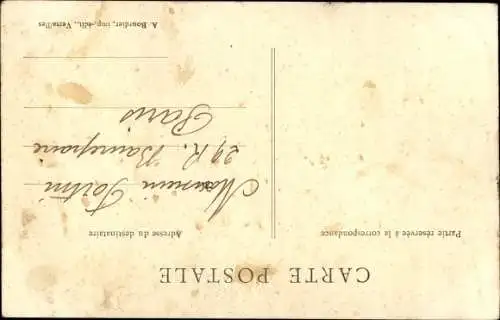 CARTE POSTALE
Partie réservée à la correspondance
Adresse du destinataire
29 R.
Paris
A. Bourdier, imp.-édit., Versailles